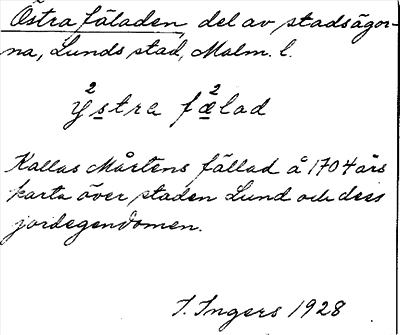 Östra fäladen, del av stadsägor-
na, Lunds stad, Malm. l.
2 2
ystra fælad
Kallas Mårtens fällad å 1704 års
karta över staden Lund och dess
jordegendomen.
I. Ingers 1928